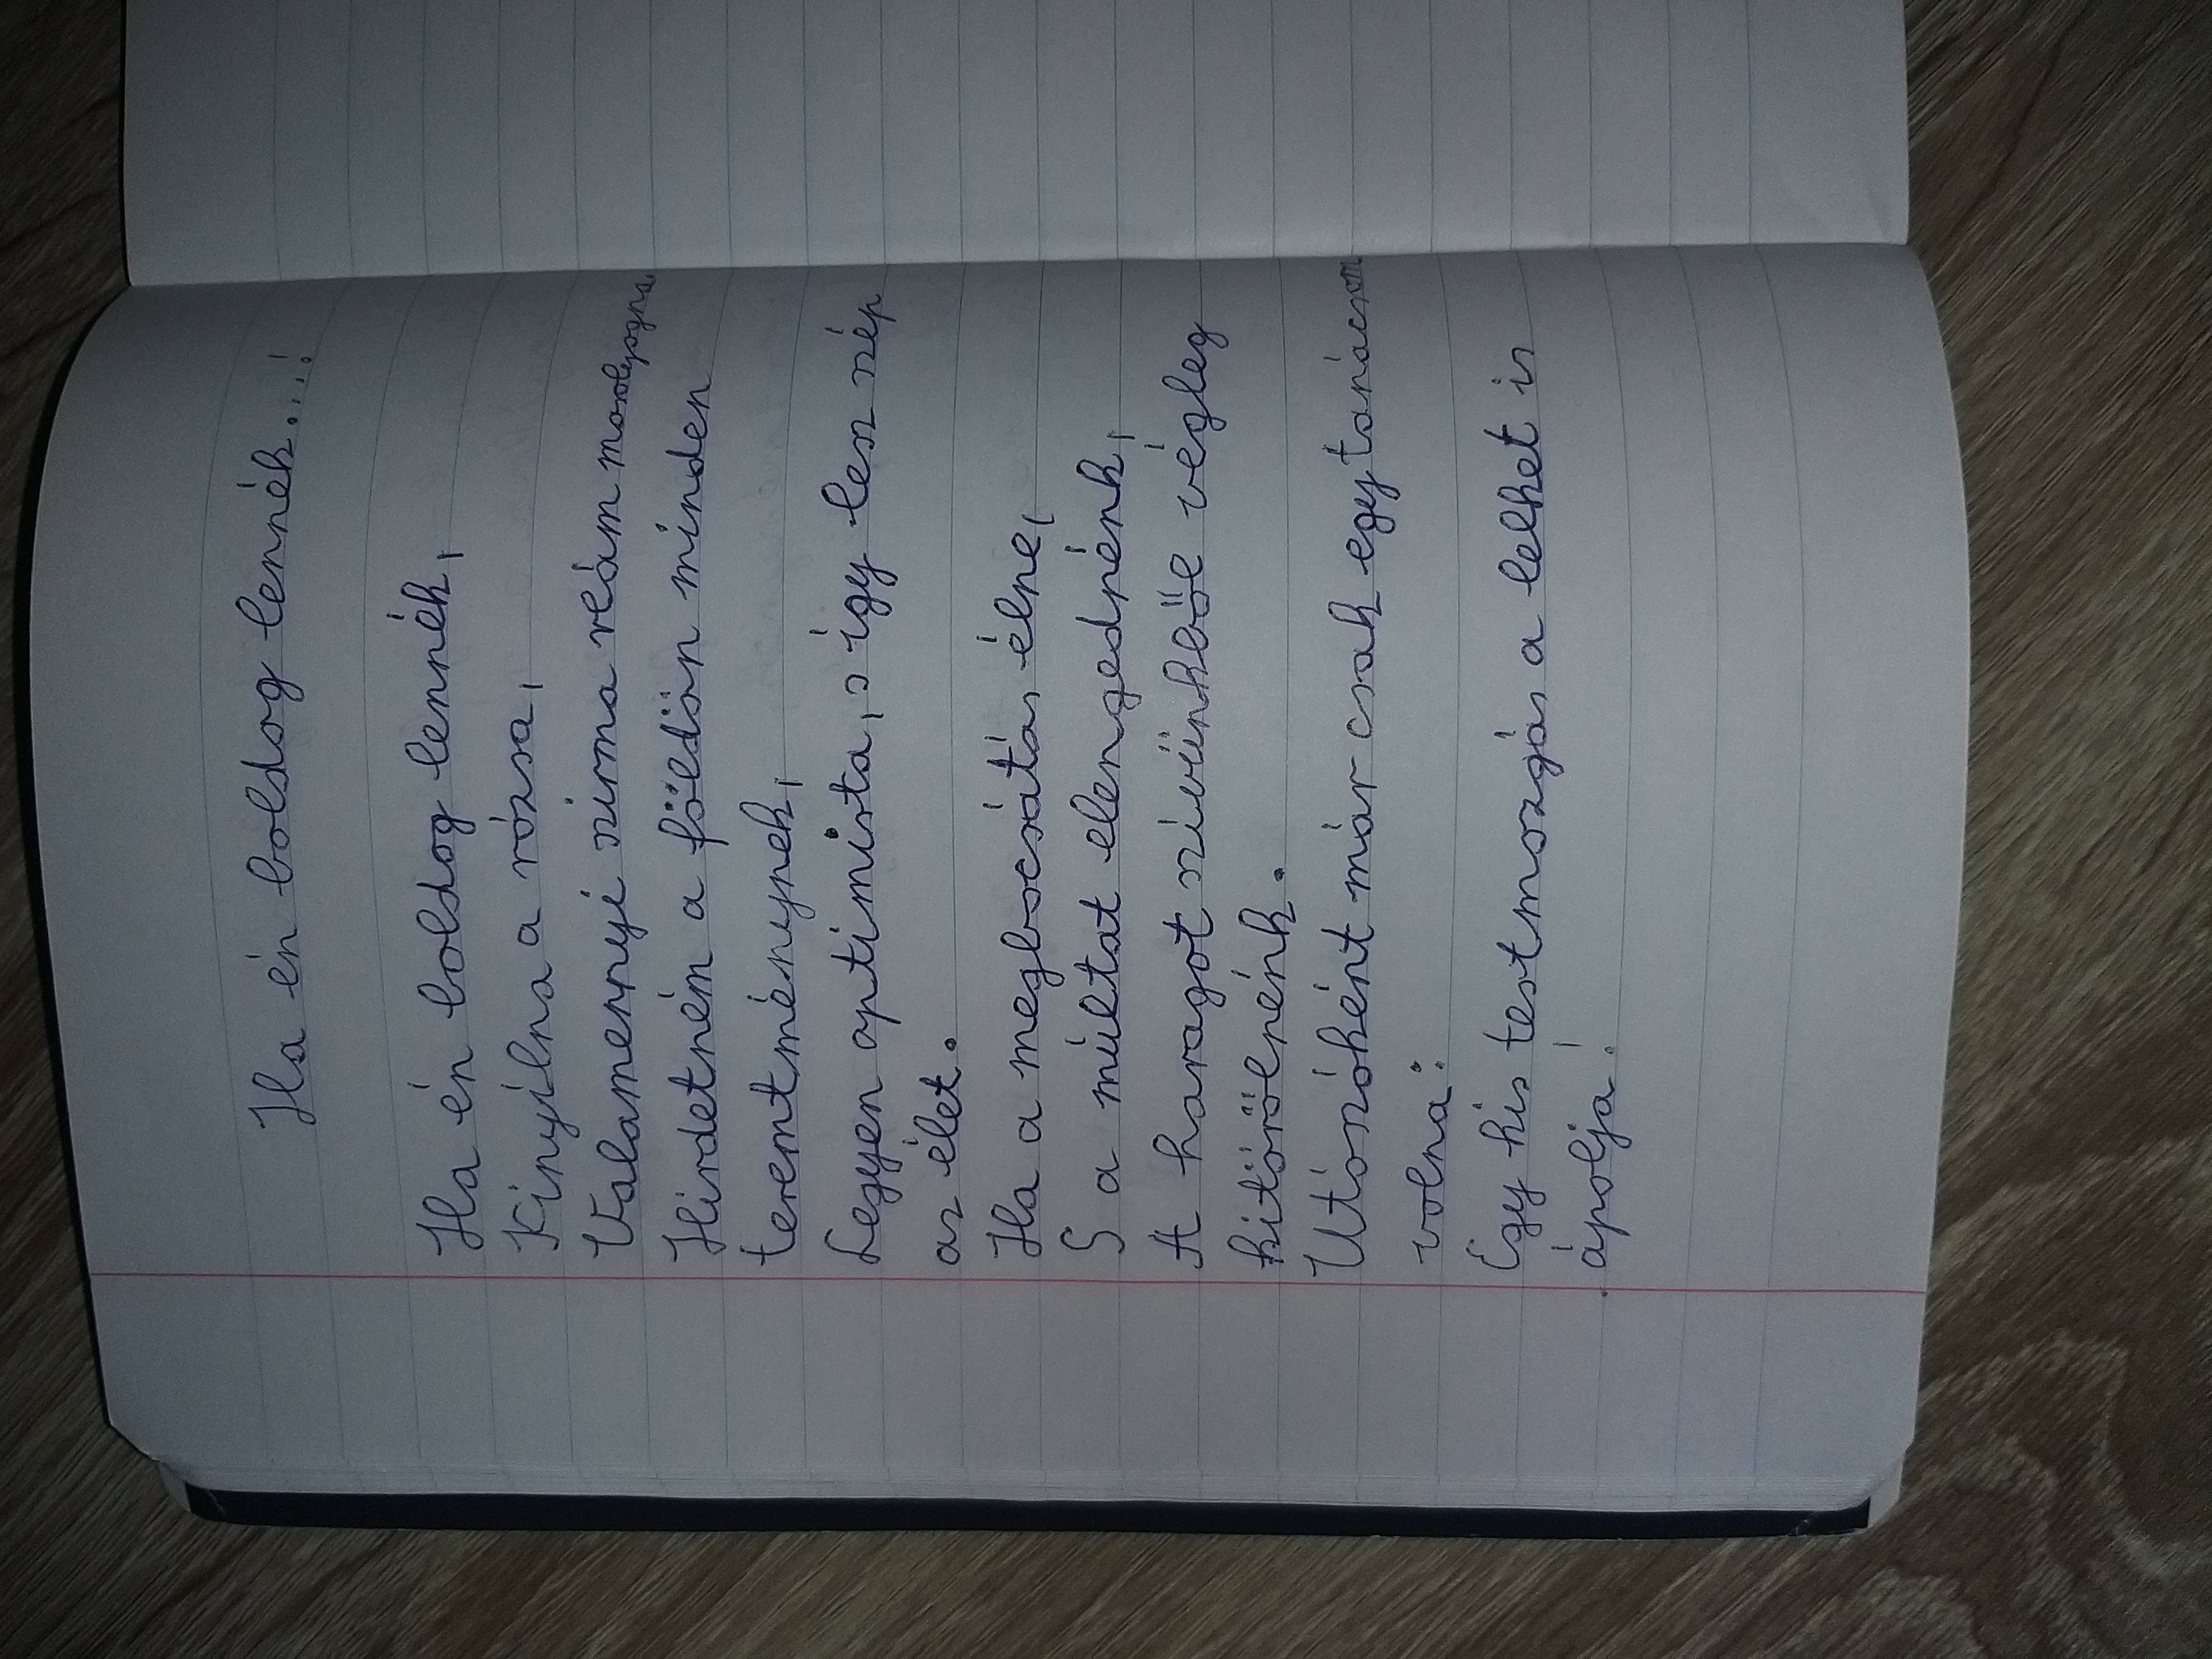 Ha én boldog lennék...!
Ha én boldog lennék,
Kinyílna a rózsa,
Valamennyi szirma reám mosolyogna
Hirdetném a földön minden
teremténynek,
Legyen optimista, s így lesz szép
az élet.
Ha a megbocsátás élne,
S a múltat elengednénk,
A haragot szívünkből végleg
kitörölnénk.
Utószóként már csak egy tanácsom
volna:
Egy kis testmozgás a lelket is
ápolja!